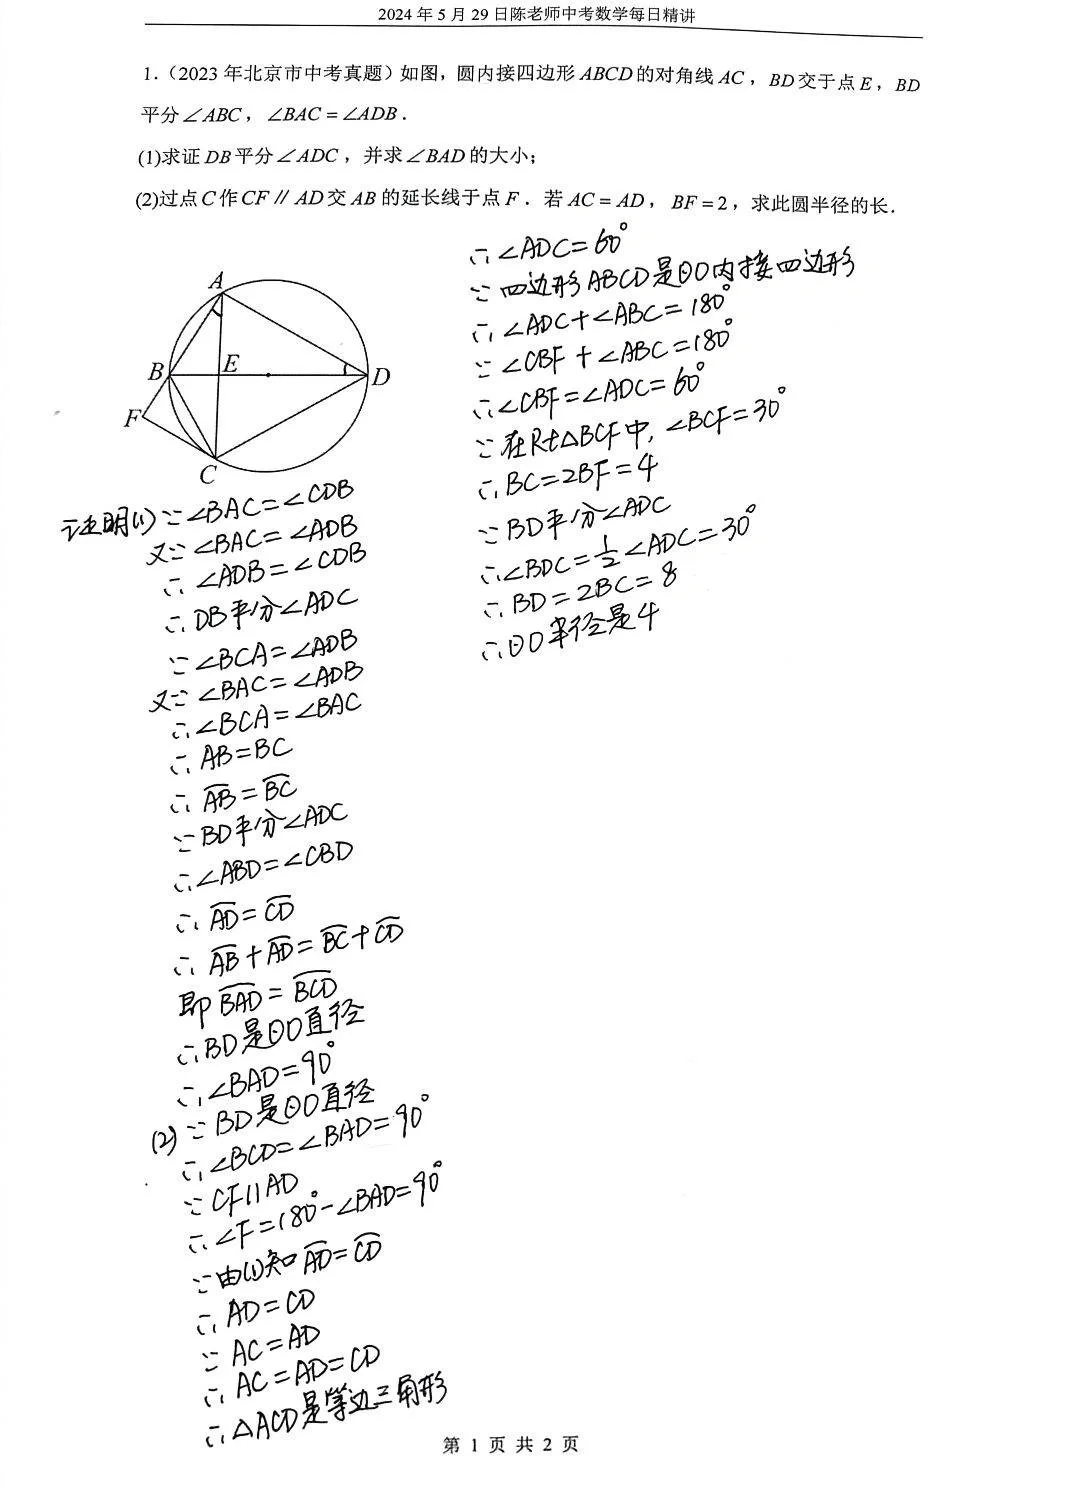 2024 年 5 月 29 日陈老师中考数学每日精讲
1.（2023 年北京市中考真题）如图，圆内接四边形 ABCD 的对角线 AC，BD 交于点 E，BD
平分∠ABC，∠BAC=∠ADB．
(1)求证 DB 平分∠ADC，并求∠BAD 的大小；
(2)过点 C 作 CF∥AD 交 AB 的延长线于点 F．若 AC=AD，BF=2，求此圆半径的长．
A
B
E
D
F
C
证明(1)∵∠BAC=∠CDB
又∵∠BAC=∠ADB
∴∠ADB=∠CDB
∴DB平分∠ADC
∵∠BCA=∠ADB
又∵∠BAC=∠ADB
∴∠BCA=∠BAC
∴AB=BC
∴A͡B=B͡C
∵BD平分∠ADC
∴∠ABD=∠CBD
∴A͡D=C͡D
∴A͡B+A͡D=B͡C+C͡D
即B͡AD=B͡CD
∴BD是⊙O直径
∴∠BAD=90°
(2)∵BD是⊙O直径
∴∠BCD=∠BAD=90°
∵CF∥AD
∴∠F=180°-∠BAD=90°
∵由(1)知A͡D=C͡D
∴AD=CD
∵AC=AD
∴AC=AD=CD
∴△ACD是等边三角形
∴∠ADC=60°
∵四边形ABCD是⊙O内接四边形
∴∠ADC+∠ABC=180°
∵∠CBF+∠ABC=180°
∴∠CBF=∠ADC=60°
∵在Rt△BCF中，∠BCF=30°
∴BC=2BF=4
∵BD平分∠ADC
∴∠BDC=1/2∠ADC=30°
∴BD=2BC=8
∴⊙O半径是4
第 1 页 共 2 页